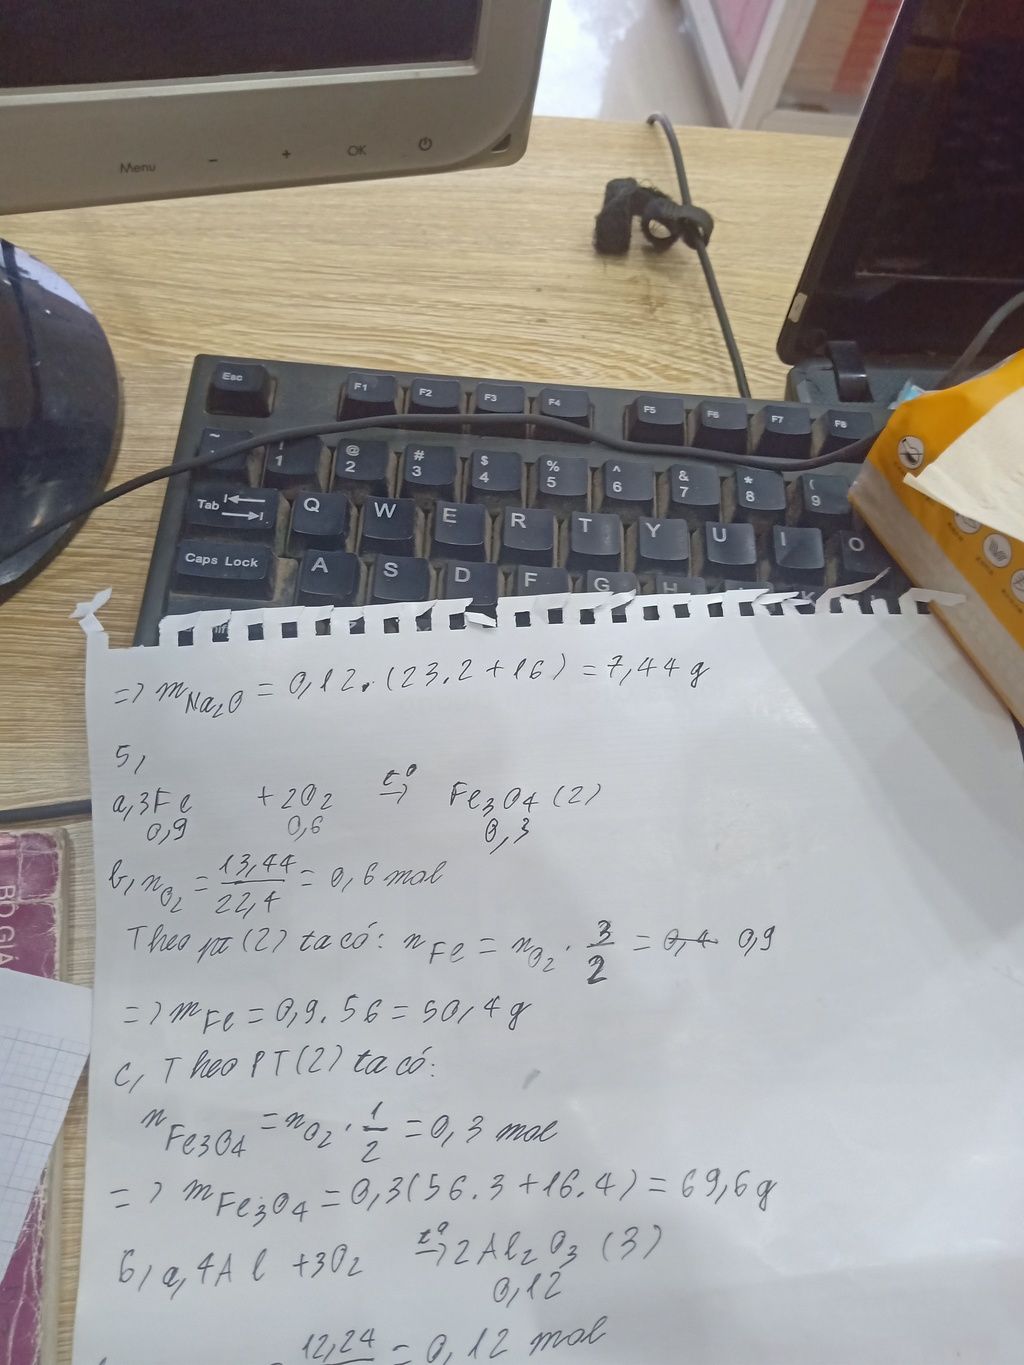 Menu - + OK
Esc F1 F2 F3 F4 F5 F6 F7 F8
~ ! 1 @ 2 # 3 $ 4 % 5 ^ 6 & 7 * 8 ( 9
Tab Q W E R T Y U I O
Caps Lock A S D F G H K
=> m Na₂O = 0,12.(23.2+16) = 7,44g
5,
a, 3Fe + 2O₂ t° → Fe₃O₄ (2)
0,9 0,6 0,3
b, n O₂ = 13,44/22,4 = 0,6 mol
Theo pt (2) ta có: n Fe = n O₂ . 3/2 = 0,4 0,9
=> m Fe = 0,9.56 = 50,4g
c, Theo PT(2) ta có:
n Fe₃O₄ = n O₂ . 1/2 = 0,3 mol
=> m Fe₃O₄ = 0,3(56.3+16.4) = 69,6g
6, a, 4Al + 3O₂ t° → 2Al₂O₃ (3)
0,12
12,24 = 0,12 mol
BỘ GIÁ